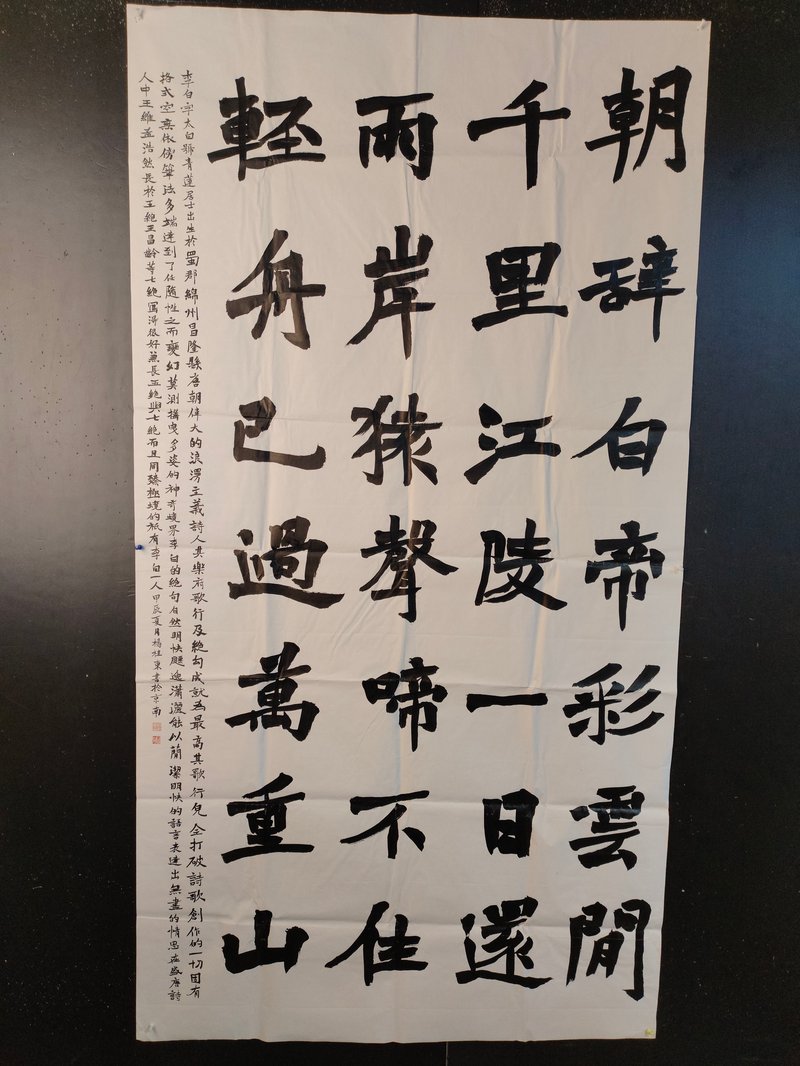 朝辞白帝彩雲閒
千里江陵一日還
兩岸猿聲啼不住
輕舟已過萬重山
李白字太白號青蓮居士出生於蜀郡綿州昌隆縣唐朝偉大的浪漫主義詩人其樂府歌行及絕句成就為最高其歌行完全打破詩歌創作的一切固有
格式空無依傍筆法多端達到了任隨性之而變幻莫測搖曳多姿的神奇境界李白的絕句自然明快飄逸瀟灑能以簡潔明快的語言表達出無盡的情思在盛唐詩
人中王維孟浩然長於五絕王昌齡等七絕寫得很好兼長五絕與七絕而且同臻極境的祇有李白一人甲辰夏月楊桂東書於京南